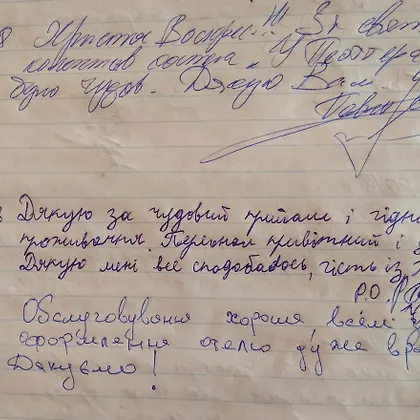 Христос Воскрес!!! За свят
готелю "У Пьотра
було чудов. Дякую Вам
Дякую за чудовий прийом і гідн
проживання. Персонал привітний і
Дякую мені все сподобалось, гість із
Р.О.
Обслуговування хороше, всём
оформлення отелю дуже вра
Дякуємо!